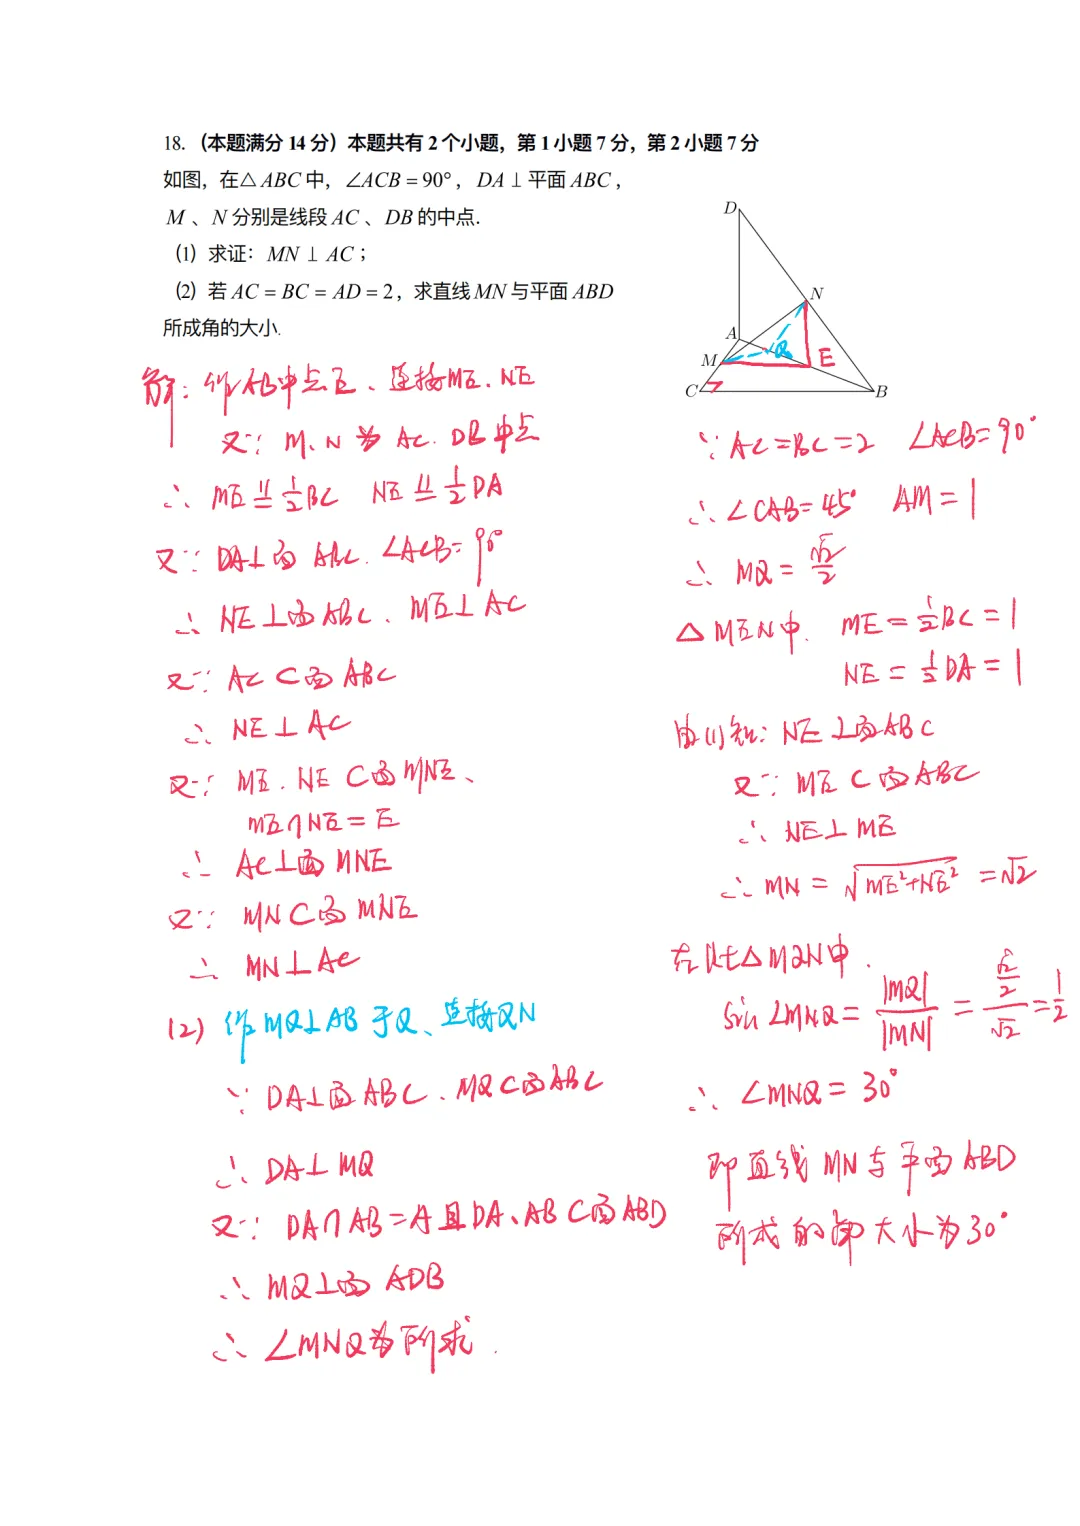 18.（本题满分 14 分）本题共有 2 个小题，第 1 小题 7 分，第 2 小题 7 分
如图，在△ABC 中，∠ACB = 90°，DA ⊥ 平面 ABC，
M 、N 分别是线段 AC 、DB 的中点.
（1）求证：MN ⊥ AC；
（2）若 AC = BC = AD = 2，求直线 MN 与平面 ABD
所成角的大小.
D
N
A
Q
E
M
C
B
解：作AB中点E、连接ME、NE
又∵ M、N 为 AC、DB 中点
∴ ME ∥= 1/2 BC NE ∥= 1/2 DA
又∵ DA⊥面 ABC. ∠ACB=90°
∴ NE⊥面ABC、ME⊥AC
又∵ AC⊂面ABC
∴ NE⊥AC
又∵ ME、NE⊂面MNE、
ME∩NE=E
∴ AC⊥面MNE
又∵ MN⊂面MNE
∴ MN⊥AC
(2) 作MQ⊥AB于Q、连接QN
∵ DA⊥面ABC、MQ⊂面ABC
∴ DA⊥MQ
又∵ DA∩AB=A且DA、AB⊂面ABD
∴ MQ⊥面ADB
∴ ∠MNQ为所求.
∵ AC=BC=2 ∠ACB=90°
∴ ∠CAB=45° AM=1
∴ MQ=√2/2
△MEN中. ME=1/2 BC=1
NE=1/2 DA=1
由(1)知：NE⊥面ABC
又∵ ME⊂面ABC
∴ NE⊥ME
∴ MN=√(ME²+NE²)=√2
在Rt△MQN中.
sin∠MNQ=|MQ|/|MN|=(√2/2)/√2=1/2
∴ ∠MNQ=30°
即直线MN与平面ABD
所成的角大小为30°